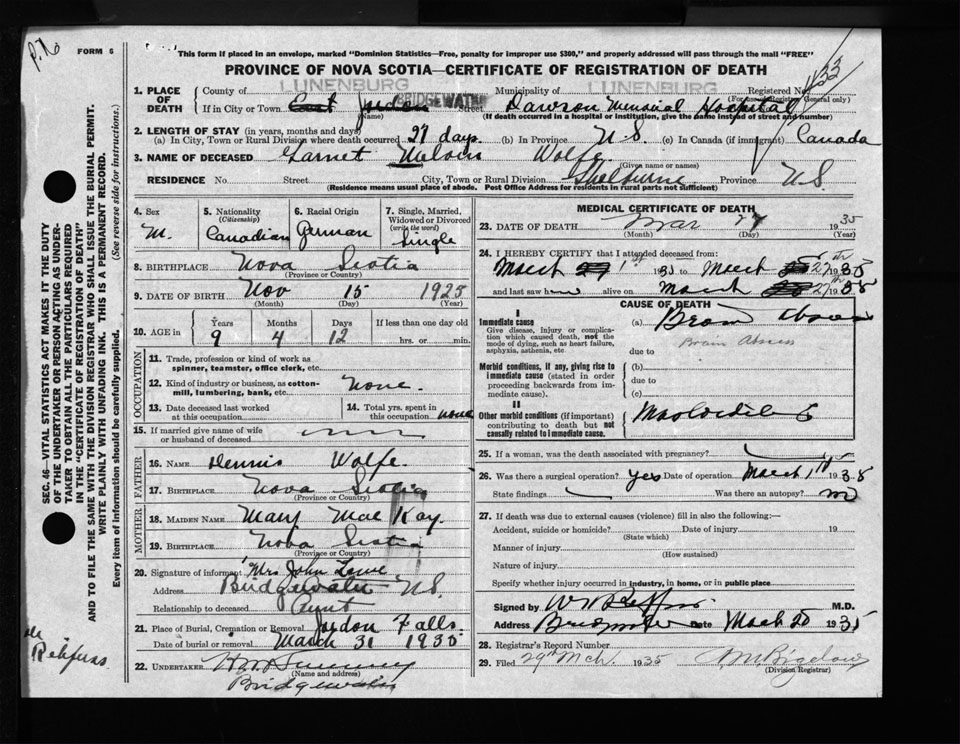 FORM 6
This form if placed in an envelope, marked "Dominion Statistics—Free, penalty for improper use $300," and properly addressed will pass through the mail "FREE"
PROVINCE OF NOVA SCOTIA—CERTIFICATE OF REGISTRATION OF DEATH
1. PLACE OF DEATH
County of LUNENBURG Municipality of LUNENBURG Registered No.
(For use of Registrar General only)
If in City or Town BRIDGEWATER Street Dawson Memorial Hospital
(Name) (If death occurred in a hospital or institution, give the name instead of street and number)
2. LENGTH OF STAY (in years, months and days)
(a) In City, Town or Rural Division where death occurred 27 days. (b) In Province N.S. (c) In Canada (if immigrant) Canada
3. NAME OF DECEASED Garnet Melvin Wolfe
(Given name or names)
RESIDENCE No. Street City, Town or Rural Division Shelburne Province N.S.
(Residence means usual place of abode. Post Office Address for residents in rural parts not sufficient)
4. Sex M.
5. Nationality (Citizenship) Canadian
6. Racial Origin German
7. Single, Married, Widowed or Divorced (write the word) Single
8. BIRTHPLACE Nova Scotia
(Province or Country)
9. DATE OF BIRTH Nov 15 1925
(Month) (Day) (Year)
10. AGE in Years 9 Months 4 Days 12 If less than one day old hrs. or min.
OCCUPATION
11. Trade, profession or kind of work as spinner, teamster, office clerk, etc.
12. Kind of industry or business, as cotton-mill, lumbering, bank, etc. None.
13. Date deceased last worked at this occupation
14. Total yrs. spent in this occupation none
15. If married give name of wife or husband of deceased
FATHER
16. NAME Dennis Wolfe.
17. BIRTHPLACE Nova Scotia
(Province or Country)
MOTHER
18. MAIDEN NAME Mary MacKay.
19. BIRTHPLACE Nova Scotia
(Province or Country)
20. Signature of informant Mrs John
Address Bridgewater N.S.
Relationship to deceased Aunt
21. Place of Burial, Cremation or Removal Jordon Falls.
Date of burial or removal March 31 1935
22. UNDERTAKER
(Name and address)
Bridgewater
MEDICAL CERTIFICATE OF DEATH
23. DATE OF DEATH Mar 27 1935
(Month) (Day) (Year)
24. I HEREBY CERTIFY that I attended deceased from:
March 1st 1935 to March 27th 1935
and last saw him alive on March 27th 1935
CAUSE OF DEATH
I
Immediate cause (a) Brain Abscess
Give disease, injury or complication which caused death, not the mode of dying, such as heart failure, asphyxia, asthenia, etc.
Brain Abscess
due to
Morbid conditions, if any, giving rise to immediate cause (stated in order proceeding backwards from immediate cause).
(b)
due to
(c)
II
Other morbid conditions (if important) contributing to death but not causally related to immediate cause.
25. If a woman, was the death associated with pregnancy?
26. Was there a surgical operation? Yes Date of operation March 1935
State findings Was there an autopsy? no
27. If death was due to external causes (violence) fill in also the following:—
Accident, suicide or homicide? Date of injury 19
(State which)
Manner of injury
(How sustained)
Nature of injury
Specify whether injury occurred in industry, in home, or in public place
Signed by M.D.
Address Bridgewater Date March 1935
28. Registrar's Record Number
29. Filed 29th Mch. 1935
(Division Registrar)
SEC. 46—VITAL STATISTICS ACT MAKES IT THE DUTY OF THE UNDERTAKER OR PERSON ACTING AS UNDERTAKER TO OBTAIN ALL THE PARTICULARS REQUIRED IN THE "CERTIFICATE OF REGISTRATION OF DEATH"
AND TO FILE THE SAME WITH THE DIVISION REGISTRAR WHO SHALL ISSUE THE BURIAL PERMIT.
WRITE PLAINLY WITH UNFADING INK. THIS IS A PERMANENT RECORD.
Every item of information should be carefully supplied. (See reverse side for instructions.)